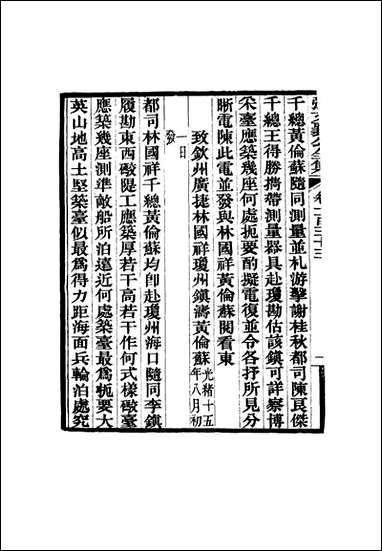 張文襄公全集 卷一百三十三 一
千總黃倫蘇隨同測量並札游擊謝桂秋都司陳良傑
千總王得勝攜帶測量器具赴瓊勘估該鎮可詳察博
釆臺應築幾座何處扼要酌擬電復並令各抒所見分
晰電陳此電並發與林國祥黃倫蘇閱看東
致欽州廣捷林國祥瓊州鎮濤黃倫蘇光緒十五年八月初
一日
發
都司林國祥千總黃倫蘇均卽赴瓊州海口隨同李鎮
履勘東西礮隄工應築厚若干高若干作何式樣礮臺
應築幾座測準敵船所泊遠近何處築臺最爲扼要大
英山地高土堅築臺似最爲得力距海面兵輪泊處究